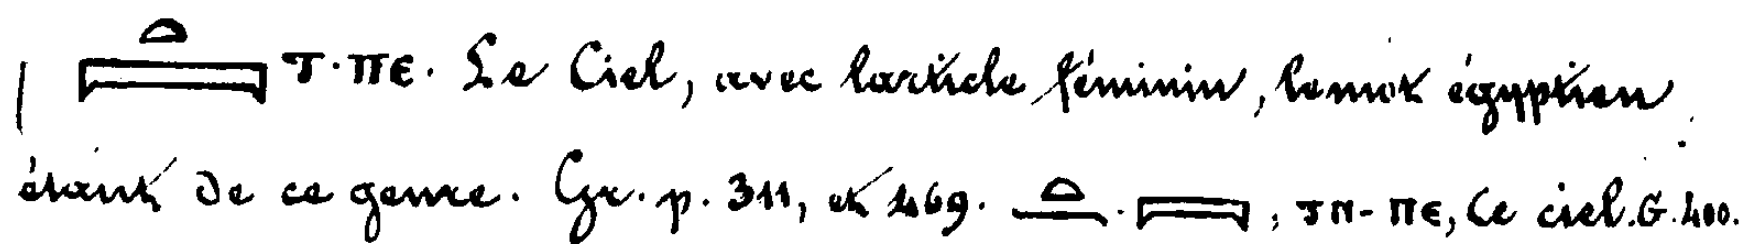 Ⲧ·ⲠⲈ. Le Ciel, avec larticle féminin, lemot égyptien
étant de ce genre. Gr. p. 311, et 469. ⲦⲚ-ⲠⲈ, Le ciel. G. 400.